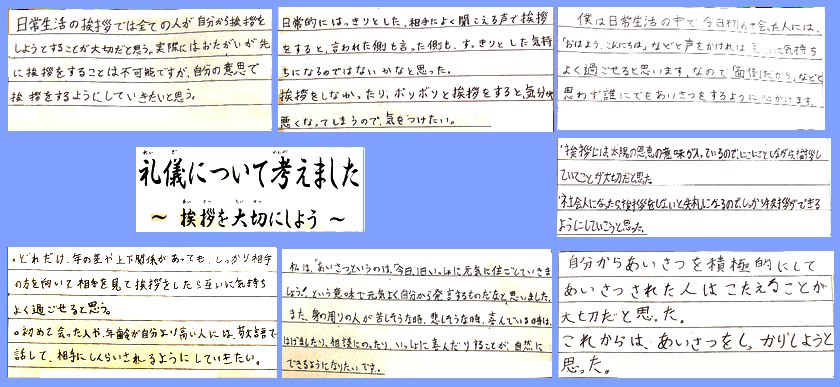 日常生活の挨拶では全ての人が自分から挨拶を
しようとすることが大切だと思う。実際にはおたがいが先
に挨拶をすることは不可能ですが、自分の意思で
挨拶をするようにしていきたいと思う。
日常的にはっきりとした、相手によく聞こえる声で挨拶
をすると、言われた側も言った側も、すっきりとした気持
ちになるのではないかなと思った。
挨拶をしなかったり、ボソボソと挨拶をすると、気分が
悪くなってしまうので、気をつけたい。
僕は日常生活の中で今日初めて会った人には、
「おはよう、こんにちは」などと声をかければ に気持ち
よく過ごせると思います。なので「面倒だから」などと
思わず、誰にでもあいさつをするように心がけます。
れい ぎ かんが
礼儀について考えました
あい さつ たい せつ
～ 挨拶を大切にしよう ～
・挨拶には太陽の恩恵の意味が入っているので、にこにことしながら挨拶し
ていくことが大切だと思った
・社会人になったら挨拶をしないと失礼になるので、しっかり挨拶ができる
ようにしていこうと思った。
・どれだけ、年の差や上下関係があっても、しっかり相手
の方を向いて相手を見て挨拶をしたら互いに気持ち
よく過ごせると思う。
・初めて会った人や、年齢が自分より高い人には、敬語で
話して、相手にしんらいされるようにしていきたい。
私は、「あいさつというのは、「今日、1日いっしょに元気に仕ごとしていきま
しょう!」という意味で元気よく自分から発言するものだなと思いました。
また、身の周りの人が苦しそうな時、悲しそうな時、喜んでいる時は、
はげましたり、相談にのったり、いっしょに喜んだりすることが、自然に
できるようになりたいです。
自分からあいさつを積極的にして
あいさつされた人はこたえることが
大切だと思った。
これからは、あいさつをしっかりしようと
思った。